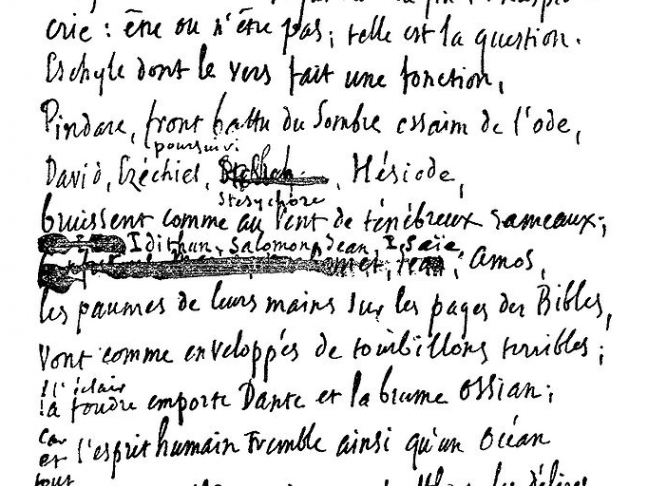 crie : être ou n'être pas ; telle est la question.
Eschyle dont le vers fait une fonction,
Pindare, front battu du sombre essaim de l'ode,
poursuivi
David, Ezéchiel, , Hésiode,
Stesychore
bruissent comme au vent de ténébreux rameaux ;
Idithun, Salomon, Jean, Isaïe
, Amos,
les paumes de leurs mains sur les pages des Bibles,
Vont comme enveloppés de tourbillons terribles ;
l'éclair
la foudre emporte Dante et la brume Ossian ;
car
et l'esprit humain tremble ainsi qu'un océan
tout